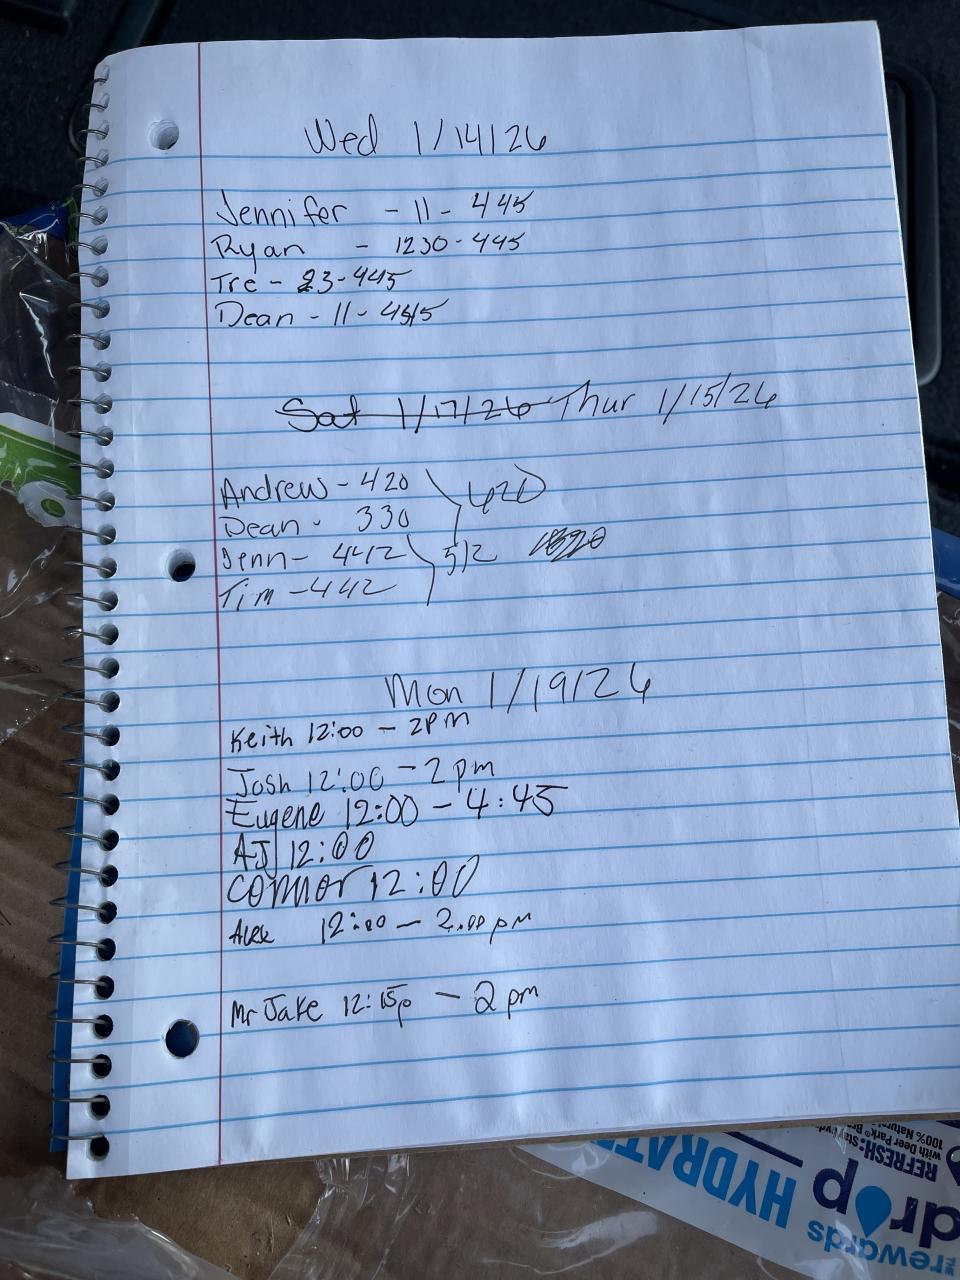 Wed 1/14/26
Jennifer - 11 - 445
Ryan - 1230 - 445
Tre - 3-445
Dean - 11 - 445
Sat 1/17/26 Thur 1/15/26
Andrew - 420
Dean - 330
620
Jenn - 442
512
Tim - 442
Mon 1/19/26
Keith 12:00 - 2PM
Josh 12:00 - 2pm
Eugene 12:00 - 4:45
AJ 12:00
Connor 12:00
Alex 12:00 - 2:00 pm
Mr Jake 12:15p - 2pm
HYDRATE
REFRESH:
with Deer Park®
100% Natural
drop
THE rewards